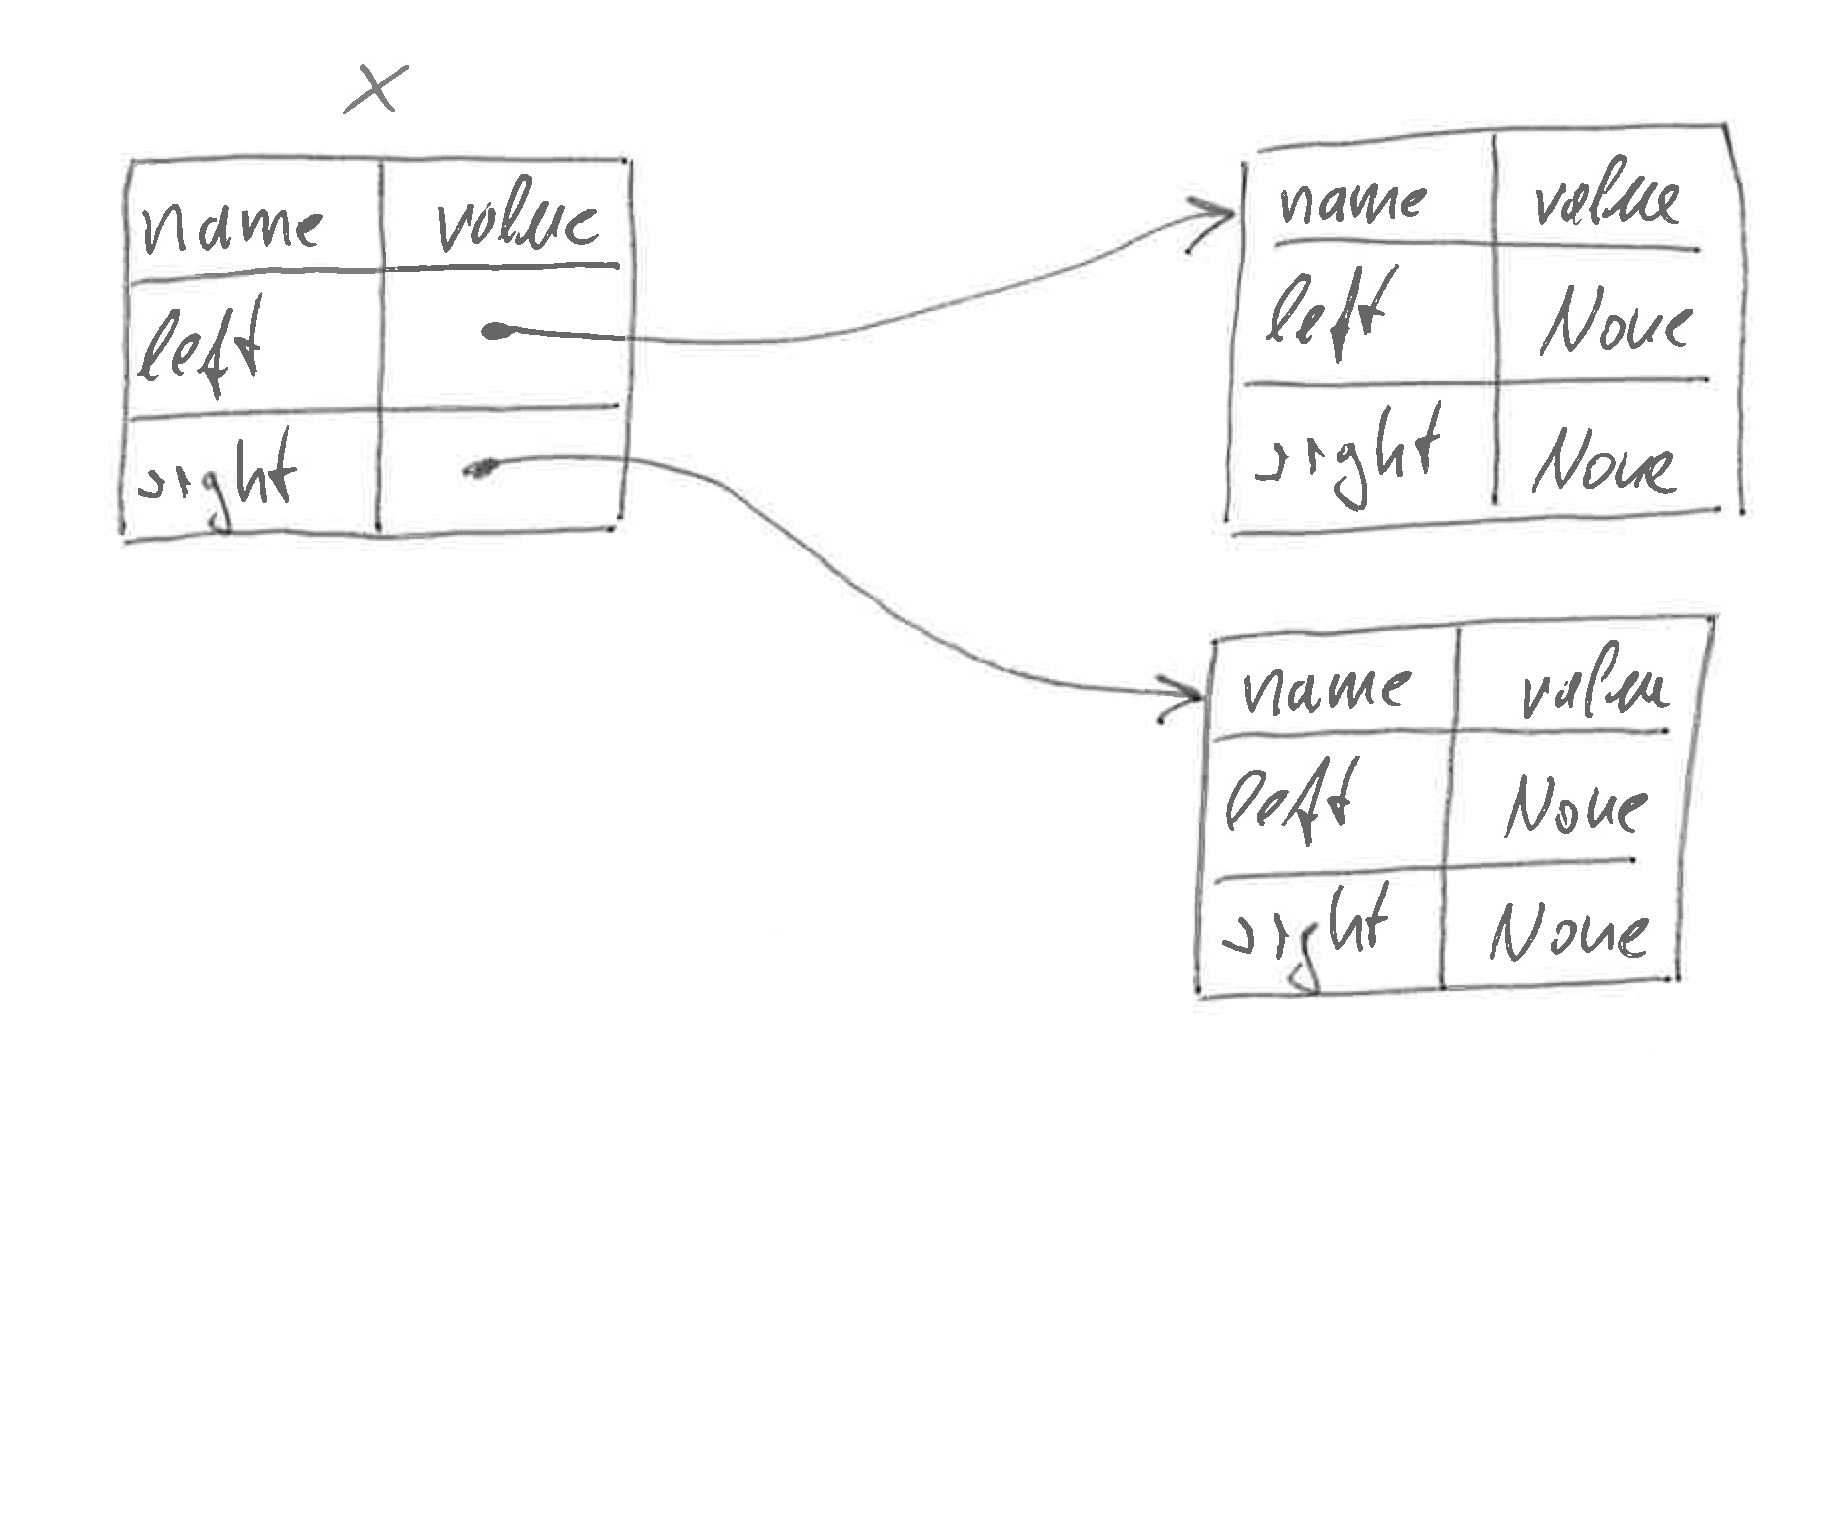 X
name value
left
right
name value
left None
right None
name value
left None
right None